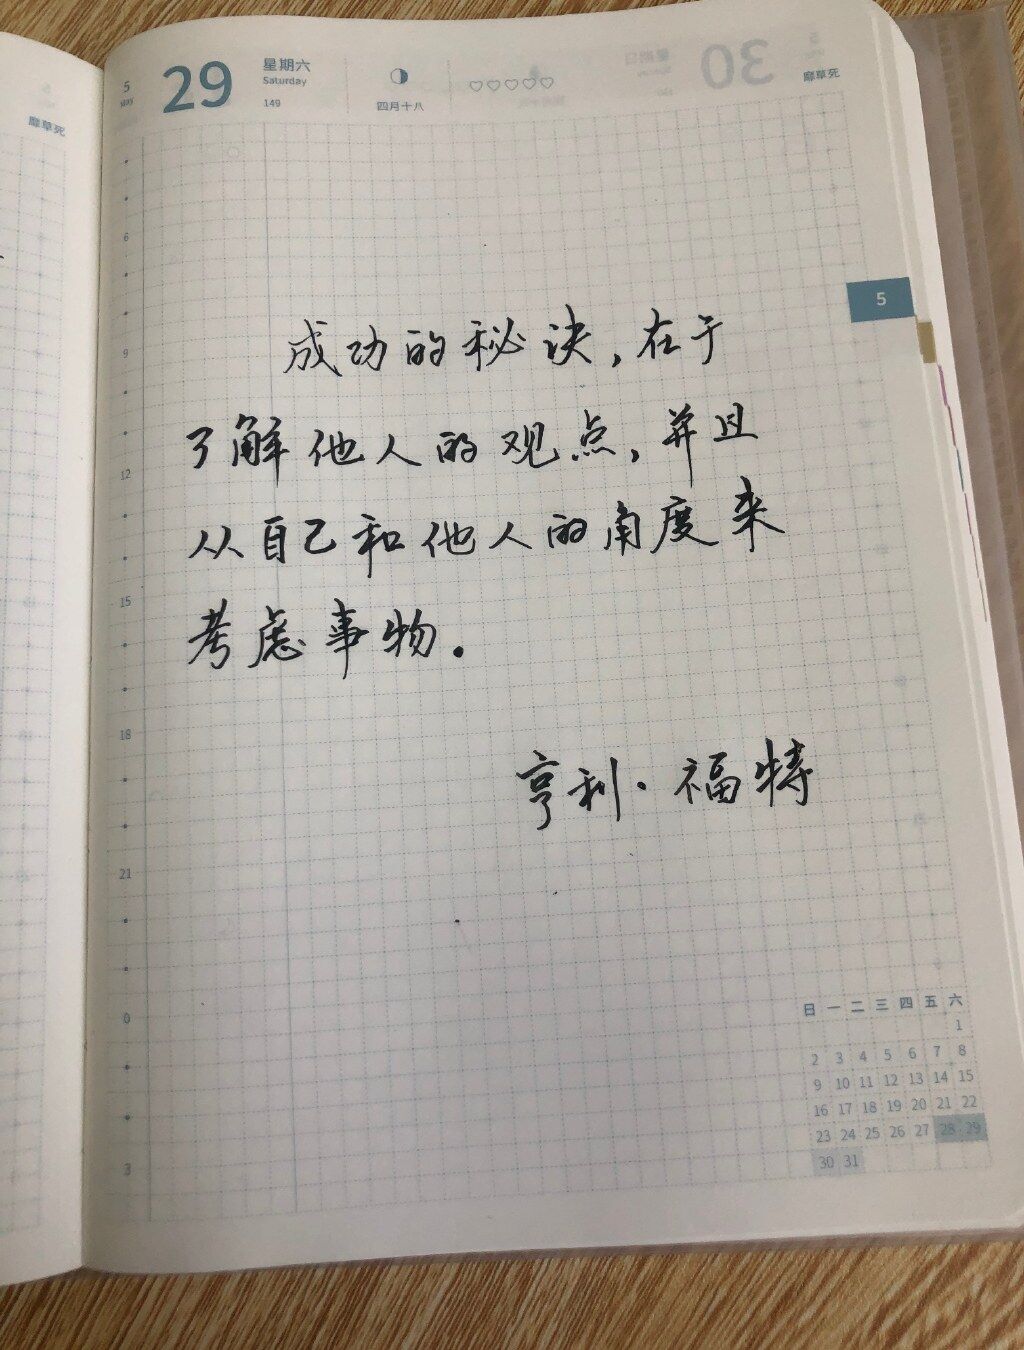 5
MAY
29
星期六
Saturday
149
四月十八
靡草死
靡草死
30
5
6
9
12
15
18
21
0
3
成功的秘诀,在于
了解他人的观点,并且
从自己和他人的角度来
考虑事物.
亨利·福特
日 一 二 三 四 五 六
1
2 3 4 5 6 7 8
9 10 11 12 13 14 15
16 17 18 19 20 21 22
23 24 25 26 27 28 29
30 31